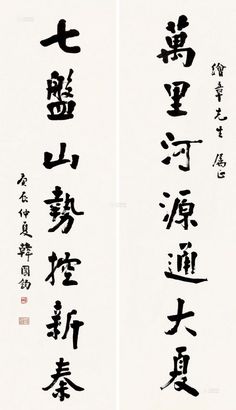 繪章先生屬正
萬里河源通大夏
七盤山勢控新秦
庚辰仲夏韓國鈞